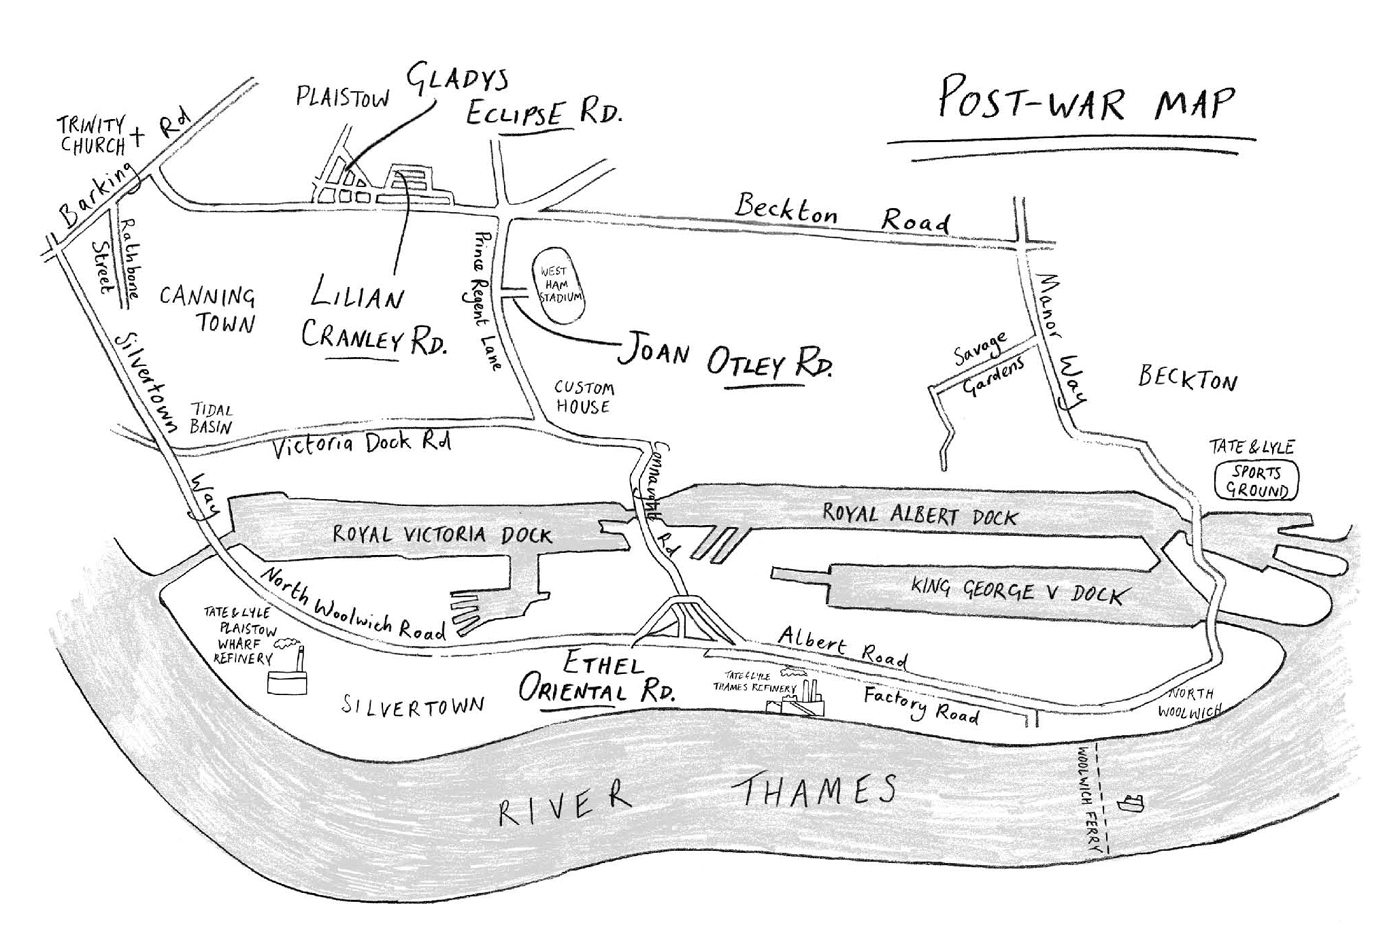 POST-WAR MAP
PLAISTOW
GLADYS
ECLIPSE RD.
TRINITY
CHURCH
Barking Rd
Rathbone
Street
CANNING
TOWN
LILIAN
CRANLEY RD.
Prince Regent Lane
WEST
HAM
STADIUM
Beckton Road
JOAN OTLEY RD.
Manor Way
Savage
Gardens
BECKTON
CUSTOM
HOUSE
Silvertown Way
TIDAL
BASIN
Victoria Dock Rd
Connaught Rd
TATE & LYLE
SPORTS
GROUND
ROYAL VICTORIA DOCK
ROYAL ALBERT DOCK
KING GEORGE V DOCK
North Woolwich Road
TATE & LYLE
PLAISTOW
WHARF
REFINERY
SILVERTOWN
ETHEL
ORIENTAL RD.
Albert Road
TATE & LYLE
THAMES REFINERY
Factory Road
NORTH
WOOLWICH
RIVER THAMES
WOOLWICH FERRY